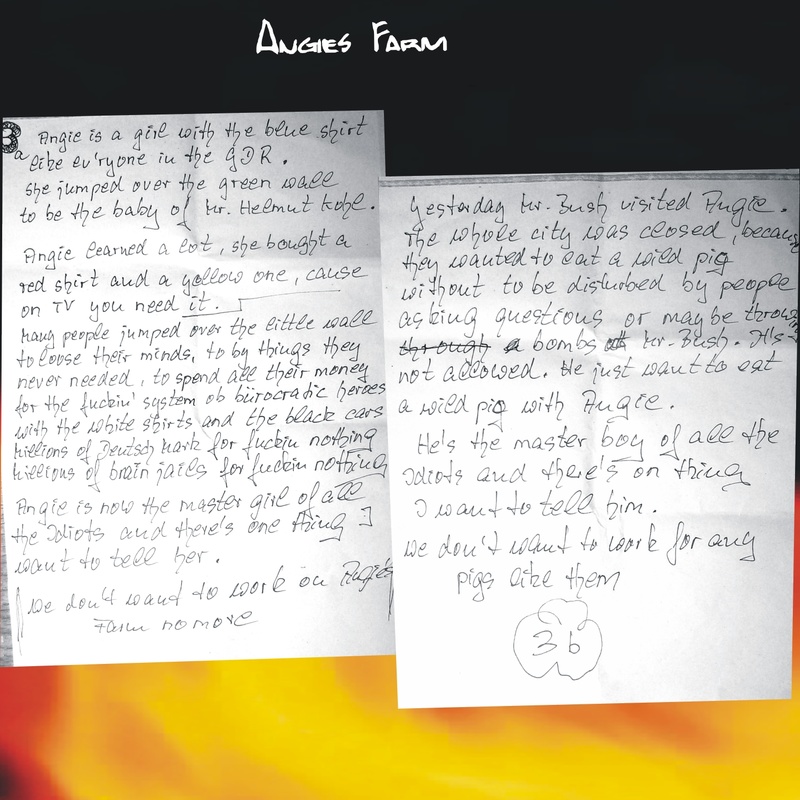 ANGIES FARM
3a
Angie is a girl with the blue shirt
like ev'ryone in the GDR.
she jumped over the green wall
to be the baby of Mr. Helmut Kohl.
Angie learned a lot, she bought a
red shirt and a yellow one, cause
on TV you need it.
Many people jumped over the little wall
to loose their minds, to by things they
never needed, to spend all their money
for the fuckin' system ob bürocratic heroes
with the white shirts and the black cars
Millions of Deutsch Mark for fuckin nothing
Millions of brain jails for fuckin nothing
Angie is now the master girl of all
the Idiots and there's one thing I
want to tell her.
we don't want to work on Angie's
Farm no more
Yesterday Mr. Bush visited Angie.
The whole city was closed, because
they wanted to eat a wild pig
without to be disturbed by people
asking questions or maybe throwing
through a bombs at Mr. Bush. It's
not allowed. He just want to eat
a wild pig with Angie.
He's the master boy of all the
Idiots and there's on thing
I want to tell him.
we don't want to work for any
pigs like them
3b